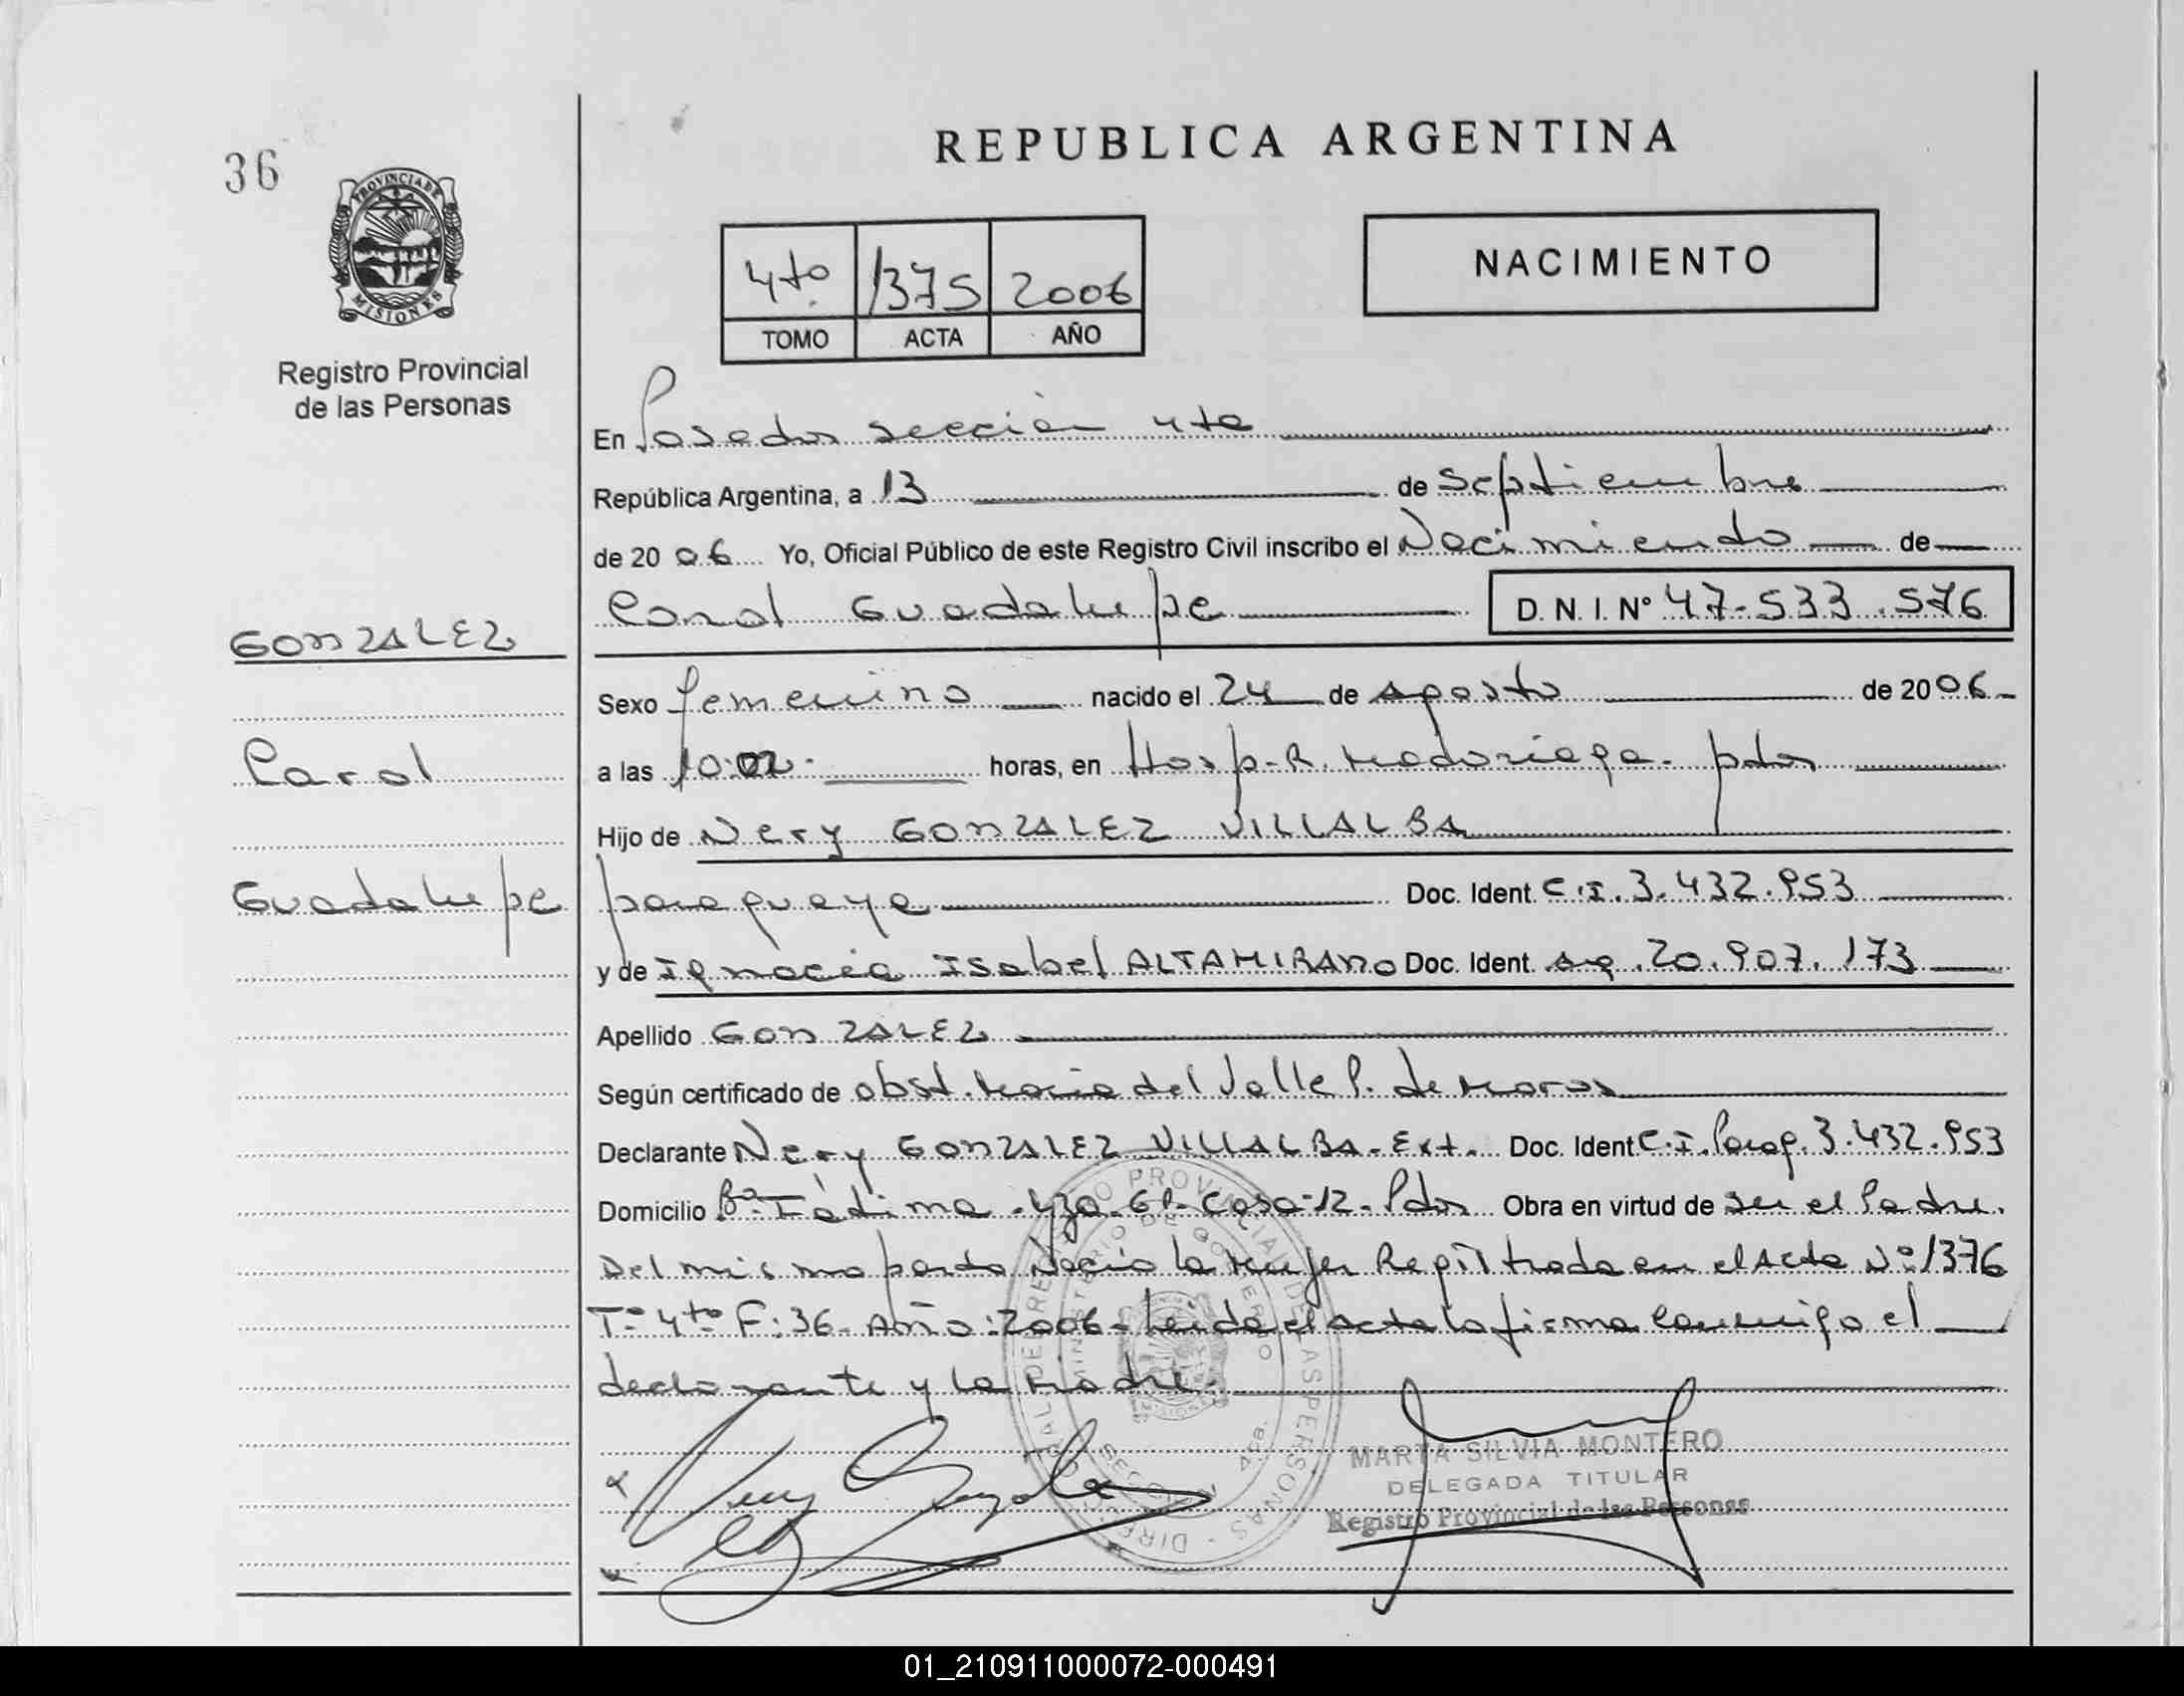 36
PROVINCIA DE
MISIONES
Registro Provincial
de las Personas
REPUBLICA ARGENTINA
4to. 1375 2006
TOMO ACTA AÑO
NACIMIENTO
En Posadas sección 4ta
República Argentina, a 13 de septiembre
de 2006 Yo, Oficial Público de este Registro Civil inscribo el Nacimiento de
Carol Guadalupe D.N.I. Nº 47.533.576
GONZALEZ
Carol
Guadalupe
Sexo femenino nacido el 24 de agosto de 2006
a las 10:02 horas, en Hosp. R. Madariaga - pdas
Hijo de Nery GONZALEZ VILLALBA
paraguaya Doc. Ident. C.I. 3.432.953
y de Ignacia Isabel ALTAMIRANO Doc. Ident. arg. 20.907.173
Apellido GONZALEZ
Según certificado de obst. Maria del Valle P. de
Declarante Nery GONZALEZ VILLALBA - Ext. Doc. Ident C.I. Parag. 3.432.953
Domicilio Bº Fátima - Casa 12 - Pdas Obra en virtud de ser el Padre.
Del mismo parto Nació la mujer Registrada en el Acta Nº 1376
Tº 4to F: 36 - Año: 2006 - Leida el acta la firma conmigo el
declarante y la Madre.
DIRECCION GRAL DE REGISTRO PROVINCIAL DE LAS PERSONAS
MINISTERIO DE GOBIERNO
SECCION 4ta.
MARTA SILVIA MONTERO
DELEGADA TITULAR
Registro Provincial de las Personas
01_210911000072-000491